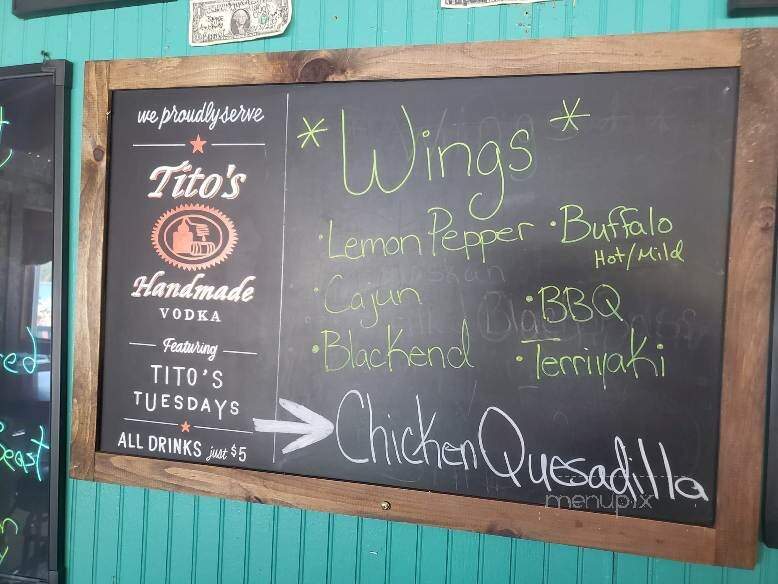 we proudly serve
Tito's
Handmade
VODKA
Featuring
TITO'S
TUESDAYS
ALL DRINKS just $5
*Wings*
·Lemon Pepper
·Buffalo
Hot/Mild
·Cajun
·BBQ
·Blackend
·Terriyaki
Chicken Quesadilla
menupix